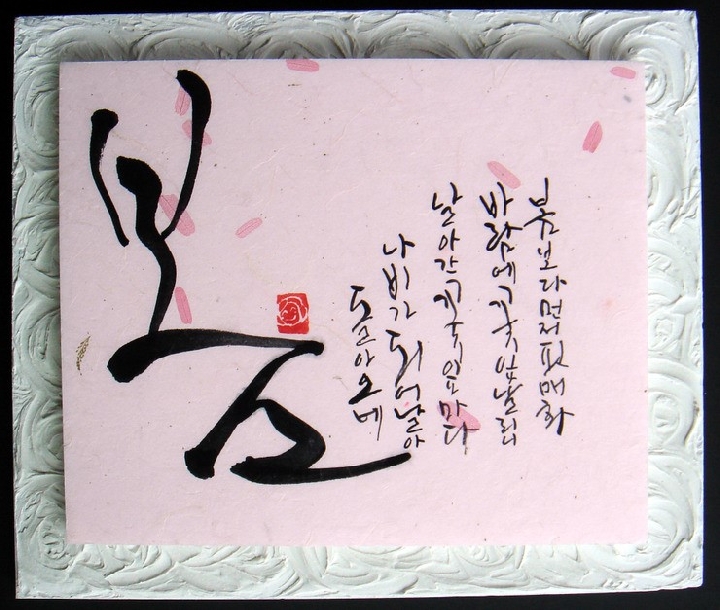 봄
봄보다먼저핀매화
바람에꽃잎날리니
날아간꽃잎마다
나비가되어날아
돌아오네